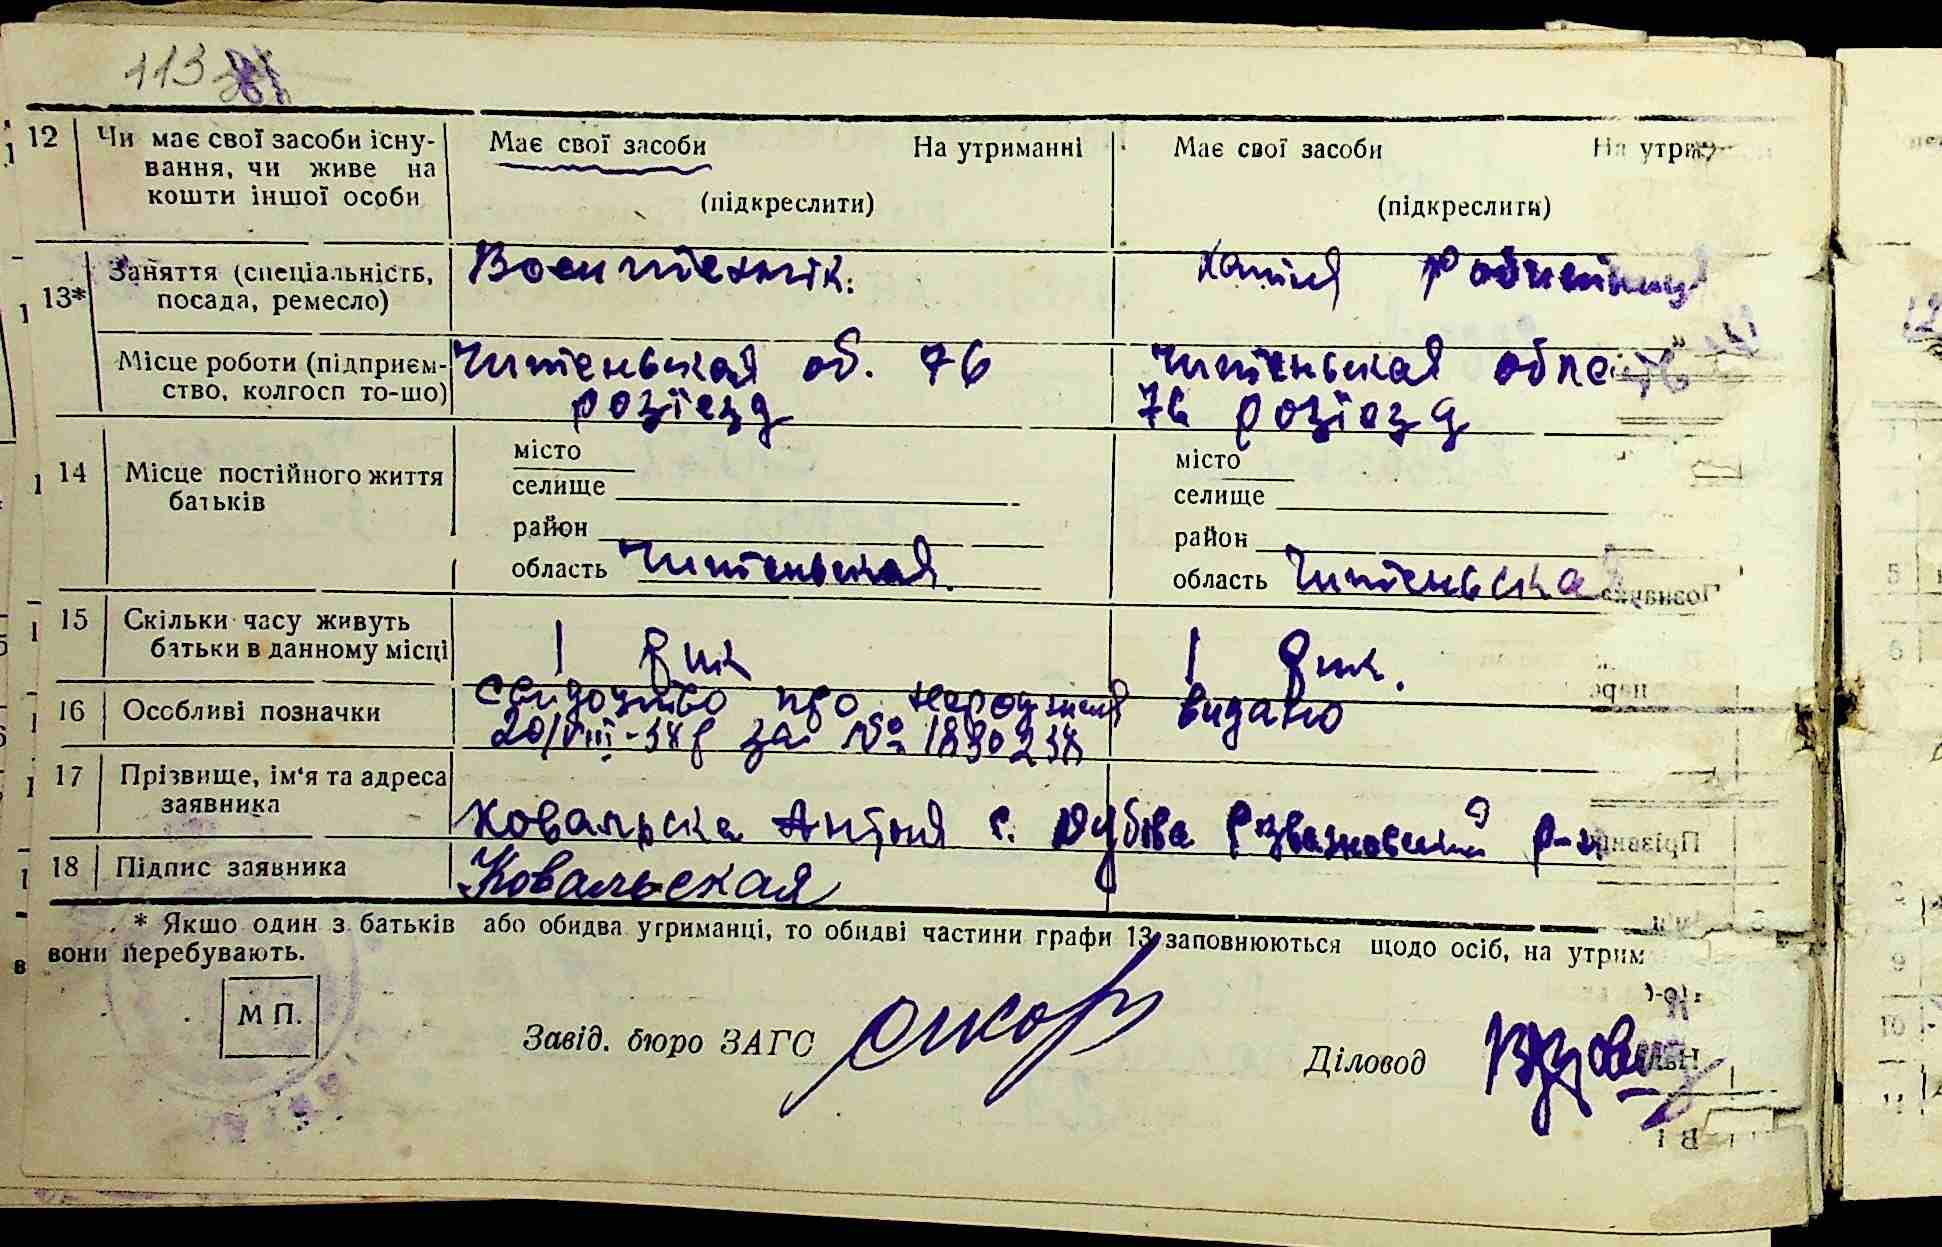 113
12 Чи має свої засоби існу-
вання, чи живе на
кошти іншої особи
Має свої засоби На утриманні
(підкреслити)
Має свої засоби На утрим
(підкреслити)
13* Заняття (спеціальність,
посада, ремесло)
Воентехнік.
Хатня робітниця
Місце роботи (підприєм-
ство, колгосп то-що)
Читеньская об. 76
розїезд
Читеньская область
76 розїезд
14 Місце постійного життя
батьків
місто
селище
район
область Читеньская.
місто
селище
район
область Читеньская
15 Скільки часу живуть
батьки в данному місці
1 рік
1 рік.
16 Особливі позначки
свидоцтво про народження видано
20/VIII-38 р за №
17 Прізвище, ім'я та адреса
заявника
Ковальска с. Розважовский р-н
18 Підпис заявника
Ковальская
* Якщо один з батьків або обидва утриманці, то обидві частини графи 13 заповнюються щодо осіб, на утрим
вони перебувають.
М П.
Завід. бюро ЗАГС
Діловод